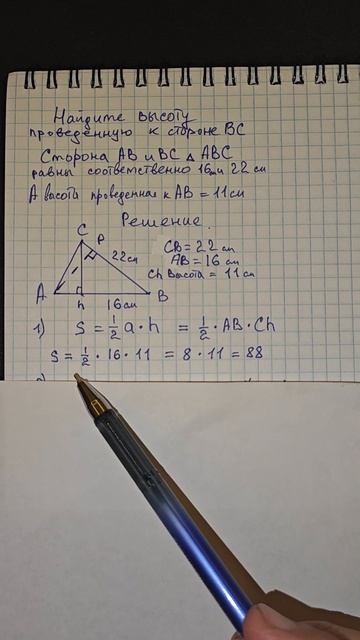 Найдите высоту
проведенную к стороне BC
Сторона AB и BC △ ABC
равны соответственно 16 см и 22 см
А высота проведенная к AB = 11 см
Решение.
C
P
22 см
CB = 22 см
AB = 16 см
Ch Высота = 11 см
A
h
16 см
B
1) S = 1/2 a · h = 1/2 · AB · Ch
S = 1/2 · 16 · 11 = 8 · 11 = 88